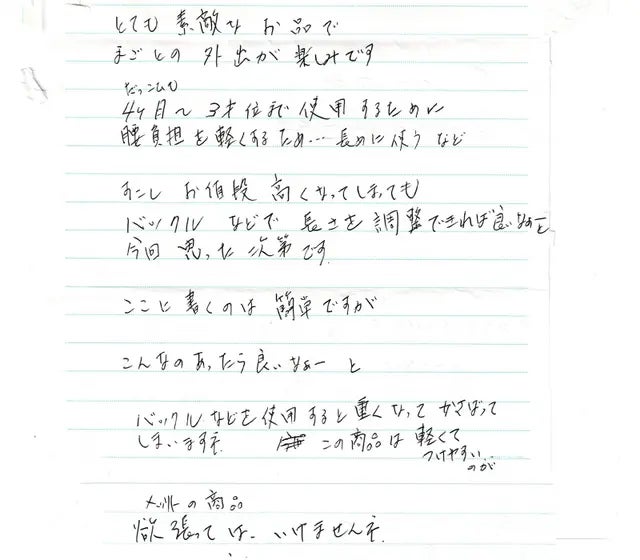 とても 素敵な お品で
まごとの 外出が 楽しみです
だっこひも
4ヶ月〜3才位まで 使用するために
腰負担を軽くするため…長めに使うなど
すこし お値段 高くなってしまっても
バックル などで 長さを調整できれば良いなぁーと
今回 思った次第です
ここに書くのは 簡単ですが
こんなのあったら良いなぁーと
バックルなどを使用すると重くなって かさばって
しまいますネ この商品は 軽くて
つけやすい
のが
メリットの商品
欲張っては、いけませんネ